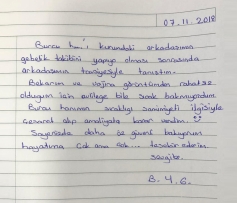 07.11.2018
Burcu H..'ı kurumdaki arkadaşımın
gebelik takibini yapıyor olması sonrasında
arkadaşımın tavsiyesiyle tanıştım.
Bekarım ve vajina görüntümden rahatsız
olduğum için evliliğe bile sıcak bakmıyordum.
Burcu hanımın sıcaklığı samimiyeti ilgisiyle
cesaret alıp ameliyata karar verdim.
Sayesinde daha öz güvenli bakıyorum
hayatıma Çok ama çok... teşekkür ederim
sevgiler.
B.Y.G.